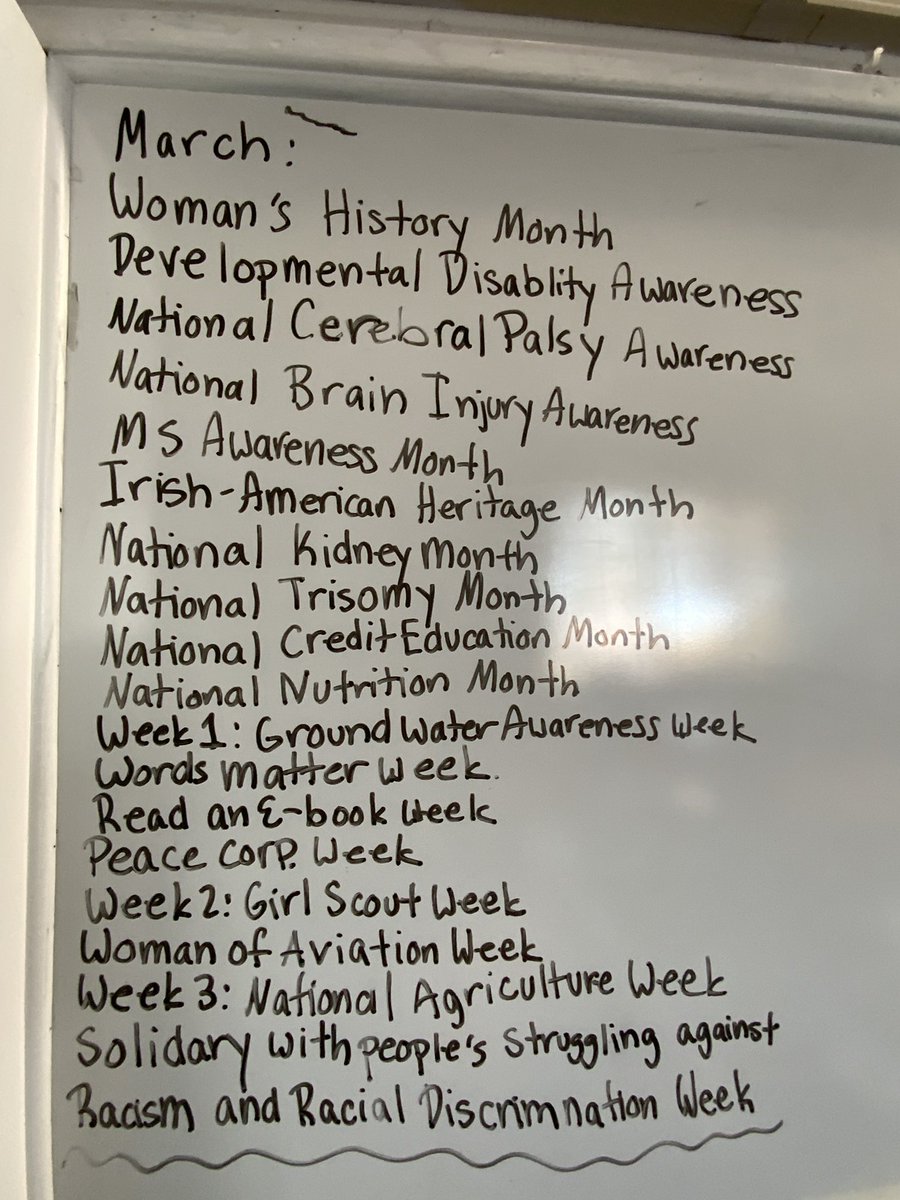 March:
Woman's History Month
Developmental Disablity Awareness
National Cerebral Palsy Awareness
National Brain Injury Awareness
MS Awareness Month
Irish-American Heritage Month
National Kidney Month
National Trisomy Month
National Credit Education Month
National Nutrition Month
Week 1: Ground Water Awareness Week
Words matter week.
Read an E-book week
Peace Corp. Week
Week 2: Girl Scout Week
Woman of Aviation Week
Week 3: National Agriculture Week
Solidary with people's struggling against
Racism and Racial Discrimnation Week